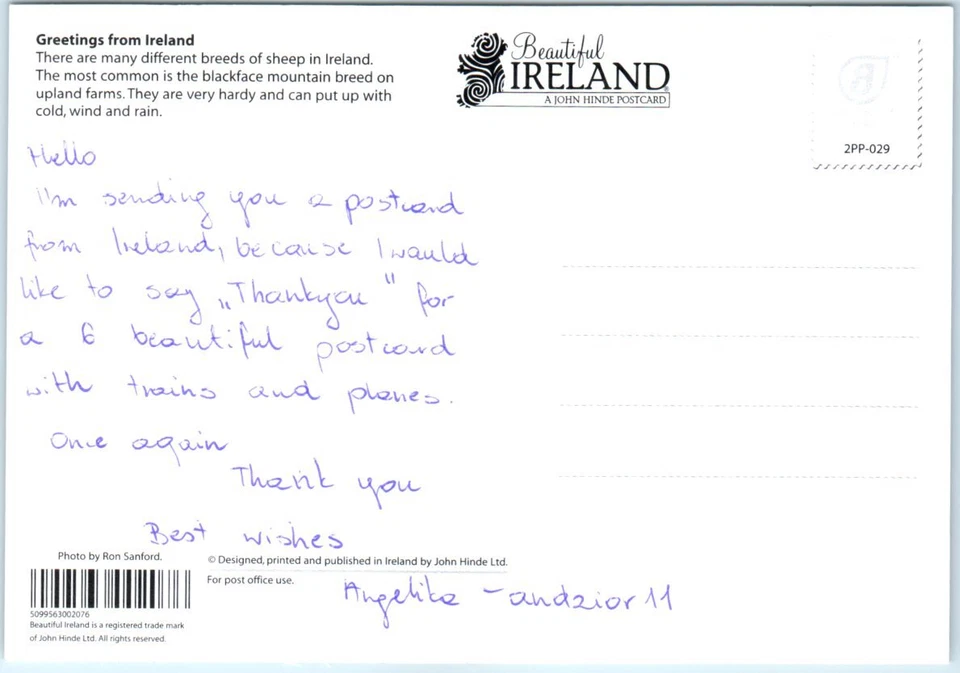 Greetings from Ireland
There are many different breeds of sheep in Ireland.
The most common is the blackface mountain breed on
upland farms. They are very hardy and can put up with
cold, wind and rain.
Beautiful
IRELAND
A JOHN HINDE POSTCARD
2PP-029
Hello
I'm sending you a postcard
from Ireland, because I would
like to say „Thankyou" for
a 6 beautiful postcard
with trains and planes.
Once again
Thank you
Best wishes
Angelika - andzior11
Photo by Ron Sanford.
5099563002076
Beautiful Ireland is a registered trade mark
of John Hinde Ltd. All rights reserved.
© Designed, printed and published in Ireland by John Hinde Ltd.
For post office use.